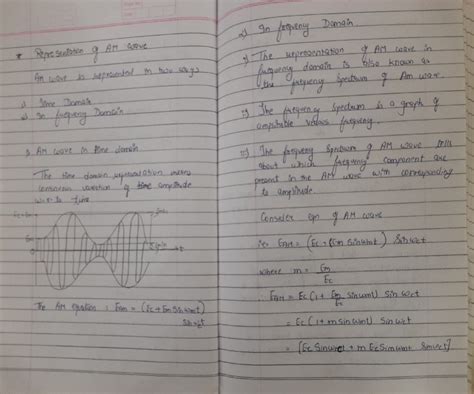 * Representation of AM wave
AM wave is represented in two ways
1) Time Domain
2) In frequency Domain
1. AM wave in time domain
The time domain representation means
continuous variation of time amplitude
w.r. to time
Ec+Em
Em
t
The AM equation : EAM = (Ec + Em sin wmt)
sin wct
2) In Frequency Domain.
i) The representation of AM wave in
frequency domain is also known as
the frequency Spectrum of Am wave.
ii) The frequency Spectrum is a graph of
amplitude versus frequency.
iii) The frequency Spectrum of AM wave tells
about which frequency component are
present in the AM wave with corresponding
to amplitude.
Consider eqn of AM wave
i.e. EAM = (Ec + Em sin wmt) sin wct
where m = Em/Ec
∴ EAM = Ec (1 + Em/Ec sin wmt) sin wct
= Ec (1 + m sin wmt) sin wct
= [Ec Sin wct + m Ec Sin wmt Sin wct]